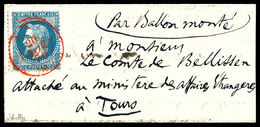 (Par Ballon monté)
EMPIRE FRANCAIS
à monsieur
Le Comte de Bellissen
attaché au ministere des affaires Etrangeres
à Tours